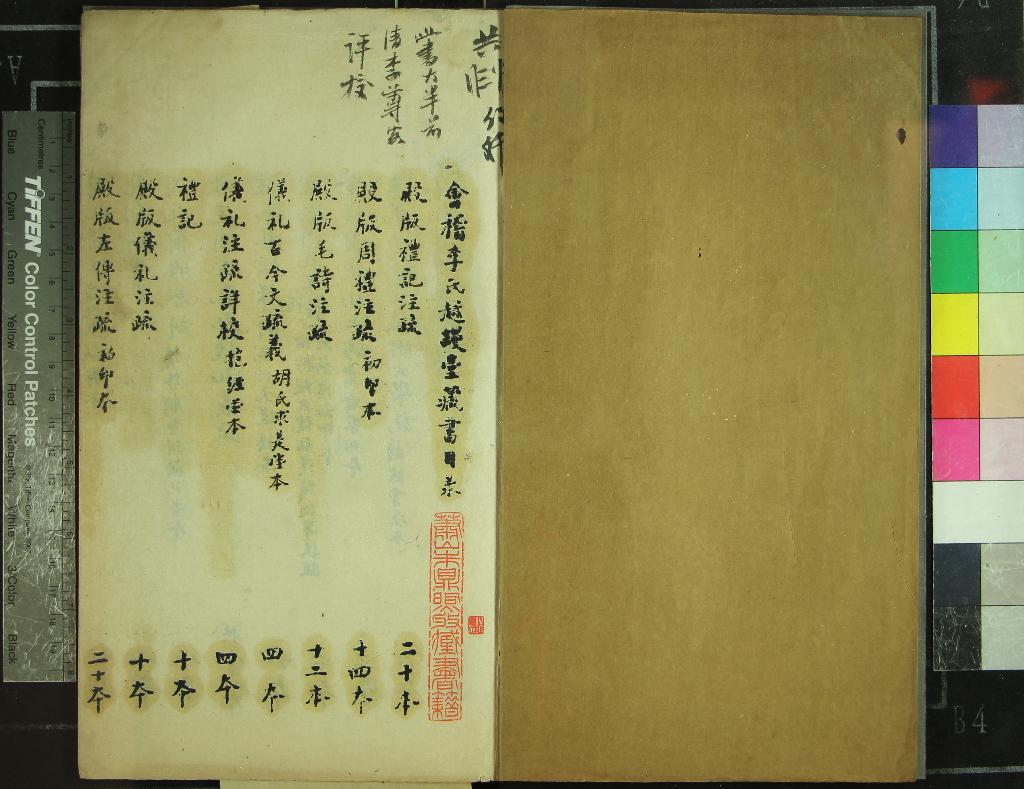 此書大半前
清李蓴客
評校
會稽李氏越縵堂藏書目录
殿版禮記注疏 二十本
殿版周禮注疏 初印本 十四本
殿版毛詩注疏 十二本
儀礼古今文疏義 胡氏求是堂本 四本
儀礼注疏詳校 抱經堂本 四本
禮記 十本
殿版儀礼注疏 十本
殿版左傳注疏 初印本 二十本
蕭山朱鼎煦收藏書籍
TIFFEN Color Control Patches
Centimetres
Blue Cyan Green Yellow Red Magenta White 3/Color Black
A
B4